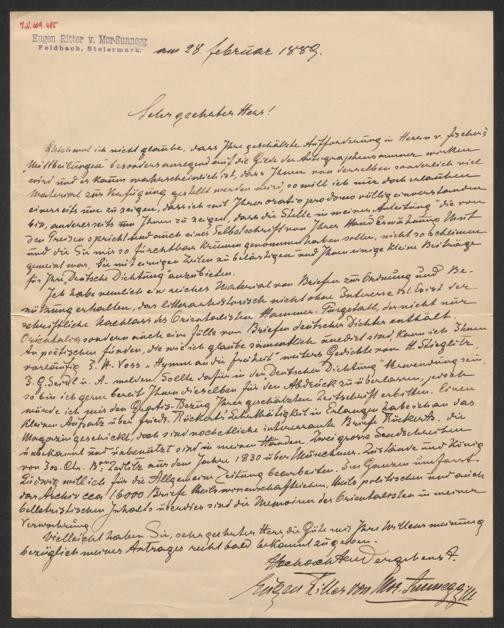 Eugen Ritter v. Mor-Sunnegg
Feldbach, Steiermark.
am 28. Februar 1889.
Sehr geehrter Herr!
Gleichwol ich nicht glaube, dass Ihre geschätzte Aufforderung in Herrn v. Fischer's
"Mittheilungen" besonders anregend auf die Gilde der Autographensammler wirken
wird und es kaum wahrscheinlich ist, dass Ihnen von derselben sonderlich viel
Material zur Verfügung gestellt werden wird, so will ich mir doch erlauben
einerseits um zu zeigen, dass ich mit Ihrer oratio pro domo völlig einverstanden
bin, anderseits um Ihnen zu zeigen, dass die Stelle in meiner Anleitung "die von
den Preisen spricht und auch eines Selbstschrift von Ihrer Hand Erwähnung thut
und die Sie mir so fürchtbar krumm genommen haben sollen, nicht so
gemeint war, Sie mit einigen Zeilen zu belästigen und Ihnen einige kleine Beiträge
für Ihre "Deutsche Dichtung" anzubieten.
Ich habe nemlich ein reiches Material von Briefen zur Ordnung und Be-
nützung erhalten, das litterarhistorisch nicht ohne Interesse ist. Es ist der
schriftliche Nachlass des Orientalisten Hammer-Purgstall, der nicht nur
Orientalia, sondern auch eine Fülle von Briefen deutscher Dichter enthält.
An poetischen Funden, die wie ich glaube sämmtlich unedirt sind, kann ich Ihnen
vorläufig J. H. Voss "Hymn an die Freiheit" weiters Gedichte von H. Stieglitz
J. G. Seidl u. A. melden. Sollte dafür in der "Deutschen Dichtung" Verwendung sein,
so bin ich gerne bereit Ihnen dieselben für den Abdruck zu überlassen, jedoch
würde ich mir den Gratis-Bezug Ihrer geschätzten Zeitschrift erbitten. Einen
kleinen Aufsatz über Friedr. Rückerts Lehrthätigkeit in Erlangen habe ich an das
Magazin geschickt, doch sind noch etliche interessante Briefe Rückerts, die
unbekannt und unbenützt sind in meinen Händen. Zwei grosse Sendschreiben
von Jos. Chr. Brn Zedlitz aus dem Jahre 1830 über Münchner Zustände und König
Ludwig will ich für die Allgemeine Zeitung bearbeiten. Im Ganzen umfasst
das Archiv cca 16000 Briefe theils wissenschaftlichen, theils politischen und auch
belletristischen Inhalts überdies sind die Memoiren des Orientalisten in meiner
Verwahrung.
Vielleicht haben Sie, sehr geehrter Herr, die Güte mir Ihre Willensmeinung
bezüglich meines Antrages recht bald bekannt zu geben.
Hochachtend ergebenst.
Eugen Ritter von Mor-Sunnegg